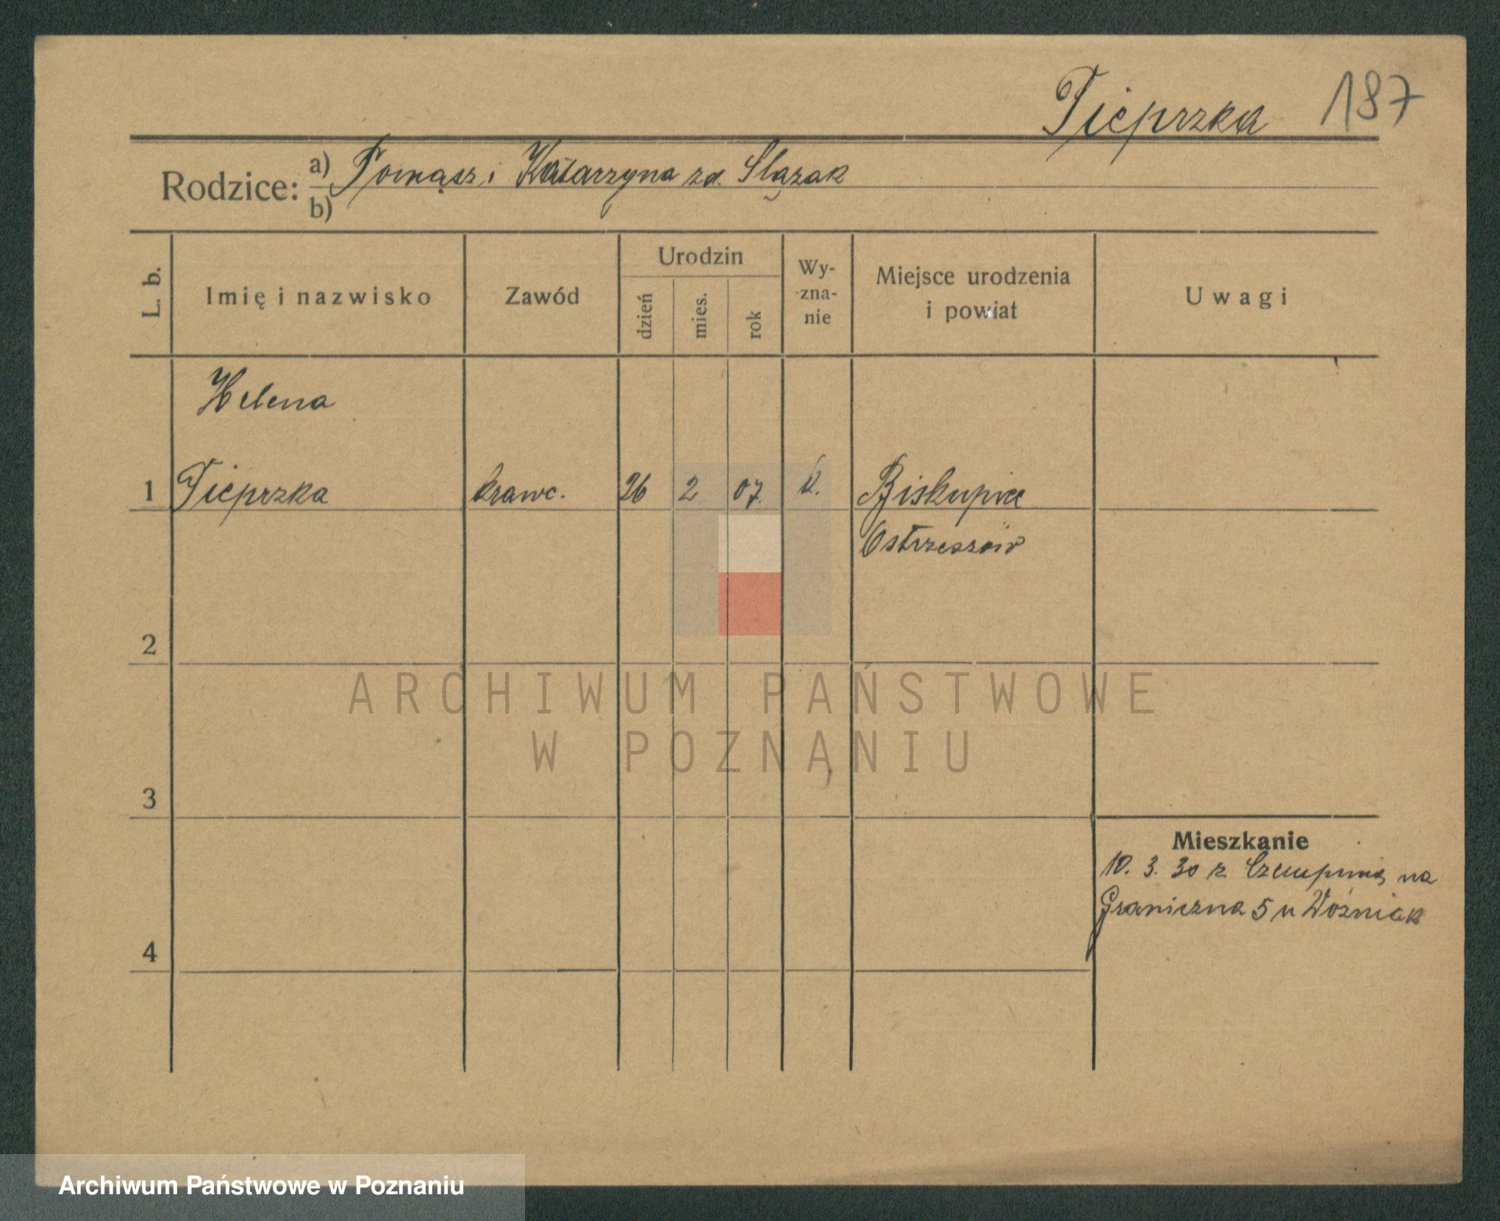 Pieprzka 187
Rodzice: a) Tomasz i Katarzyna zd. Ślązak
b)
L. b. Imię i nazwisko Zawód Urodzin dzień mies. rok Wy-zna-nie Miejsce urodzenia i powiat Uwagi
Helena
1 Pieprzka krawc. 26 2 07. k. Biskupice
Ostrzeszów
2
ARCHIWUM PAŃSTWOWE
W POZNANIU
3
Mieszkanie
10. 3. 30 z Czempinia na
Graniczna 5 u Woźniak
4
Archiwum Państwowe w Poznaniu